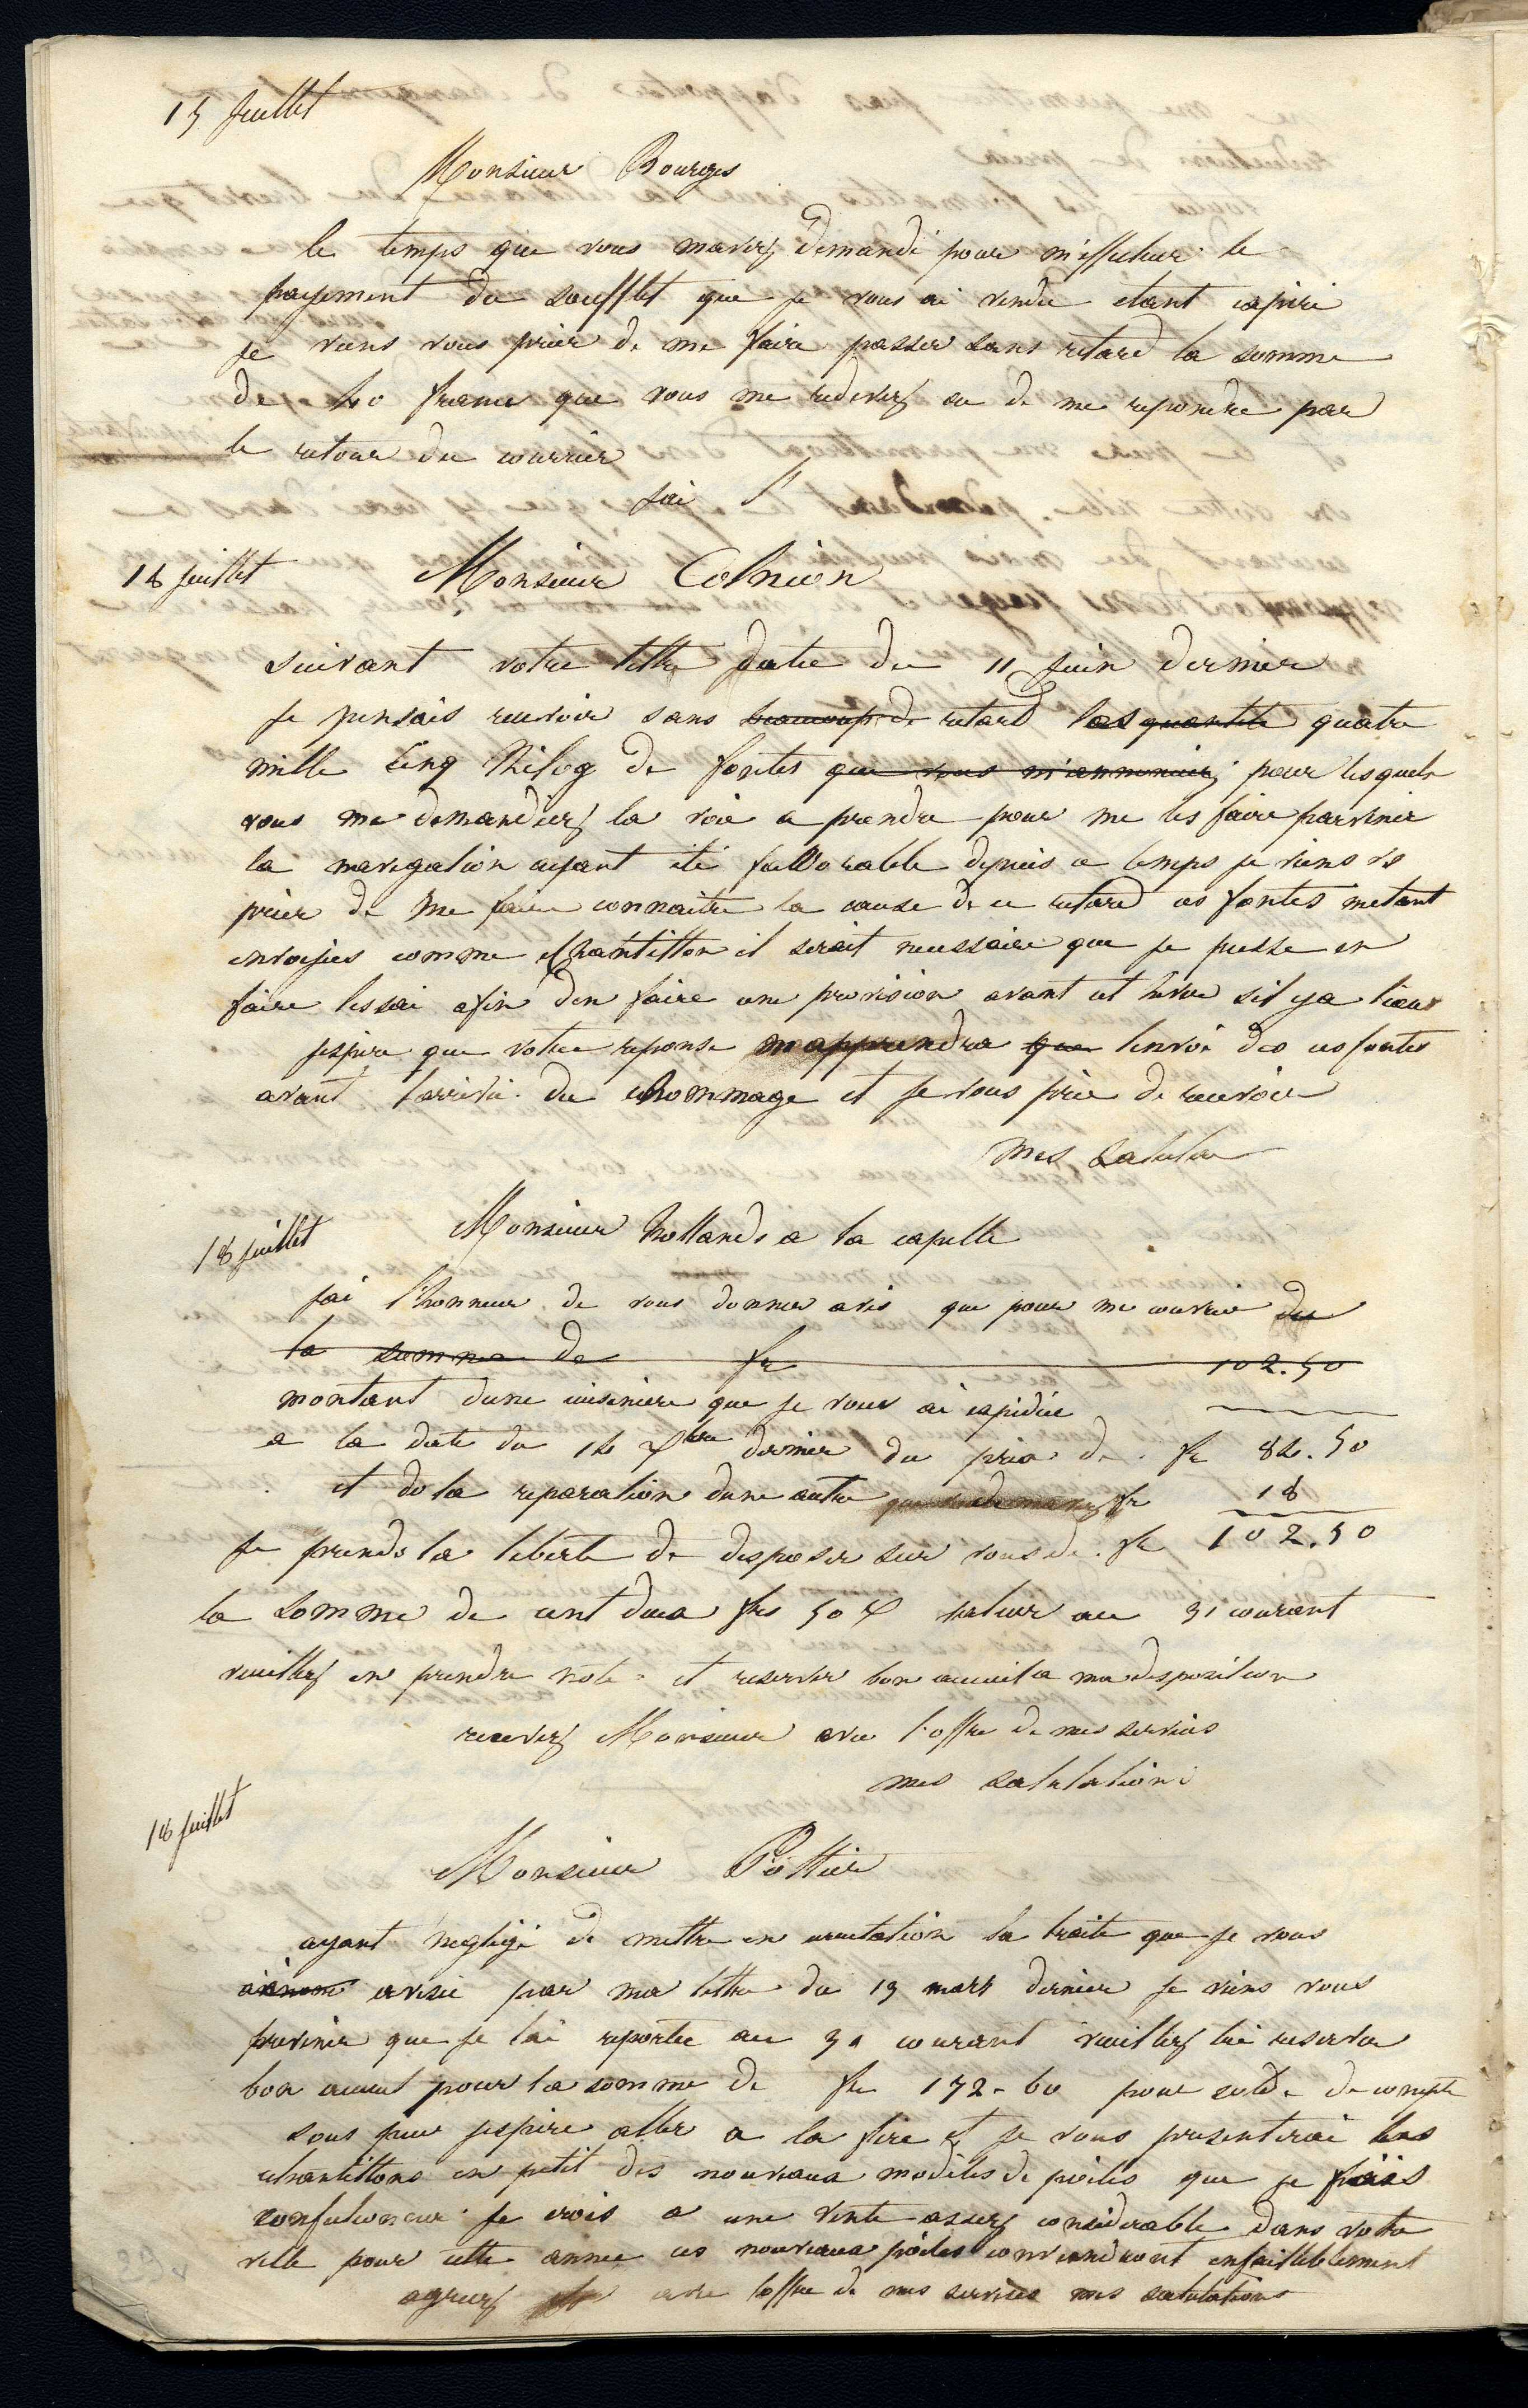 15 juillet
Monsieur Bourges
le temps que vous mavez demandé pour m'effectuer le
payement du soufflet que je vous ai vendu etant expiré
je viens vous prier de me faire passer sans retard la somme
de 40 francs que vous me redevez ou de me repondre par
le retour du courrier
jai l'
18 juillet Monsieur Colnion
suivant votre lettre datée du 11 juin dernier
je pensais recevoir sans beaucoup de retard las quantité quatre
mille cinq Kilog de fontes que vous m'annonciez pour lesquels
vous me demandiez la voie a prendre pour me les faire parvenir
la navigation ayant été favorable depuis ce temps je viens vs
prier de me faire connaitre la cause de ce retard ces fontes metant
envoyées comme echantillon il serait necessaire que je pusse en
faire lessai afin den faire une provision avant cet hiver sil ya lieu
jespere que votre reponse m'apprendra que lenvoi des ces fontes
avant larrivé du chommage et je vous prie de recevoir
mes salutu
18 juillet Monsieur hollande a la capelle
jai l'honneur de vous donner avis que pour me couvrir du
la somme de fr 102.50
montant dune cuisiniere que je vous ai expediée
a la date du 14 Xbre dernier du prix de fr 84.50
et de la reparation dune autre fr 18
je prends la liberté de disposer sur vous de fr 102.50
la somme de cent deux frs 50 c valeur au 31 courant
veuillez en prendre note et reserver bon accueil a ma disposition
recevez Monsieur avec l'offre de mes services
mes salutations
18 juillet
Monsieur Pottier
ayant negligé de mettre en circulation la traite que je vous
avisée par ma lettre du 19 mars dernier je viens vous
prevenir que je lai reportée au 31 courant veuillez lui reserver
bon accueil pour la somme de fr 172-60 pour solde de compte
sous peu jespere aller a la fere et je vous presenterai les
echantillons en petit des nouveaux modeles de poeles que je fais
confectionner je crois a une vente assez considerable dans votre
ville pour cette année ces nouveaux poëles conviendront infailliblement
agreez avec loffre de mes services mes salutations